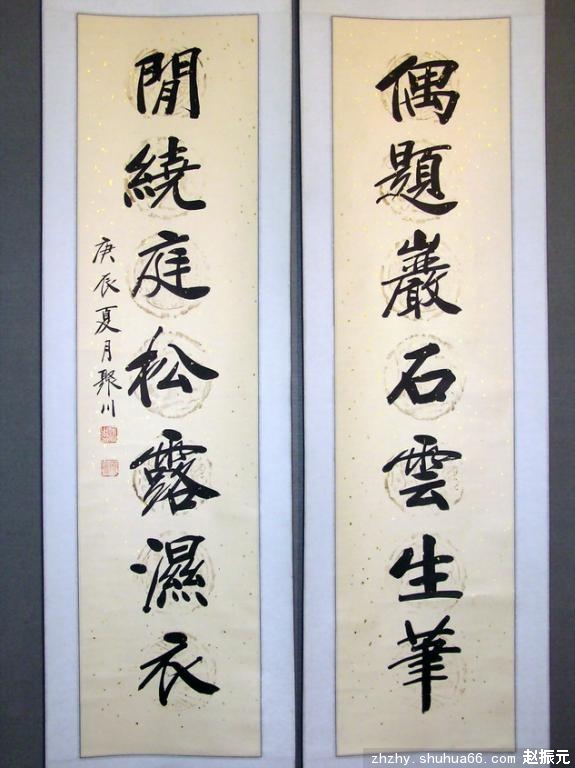 偶題巖石雲生筆
閒繞庭松露濕衣
庚辰夏月聚川
zhzhy.shuhua66.com 赵振元